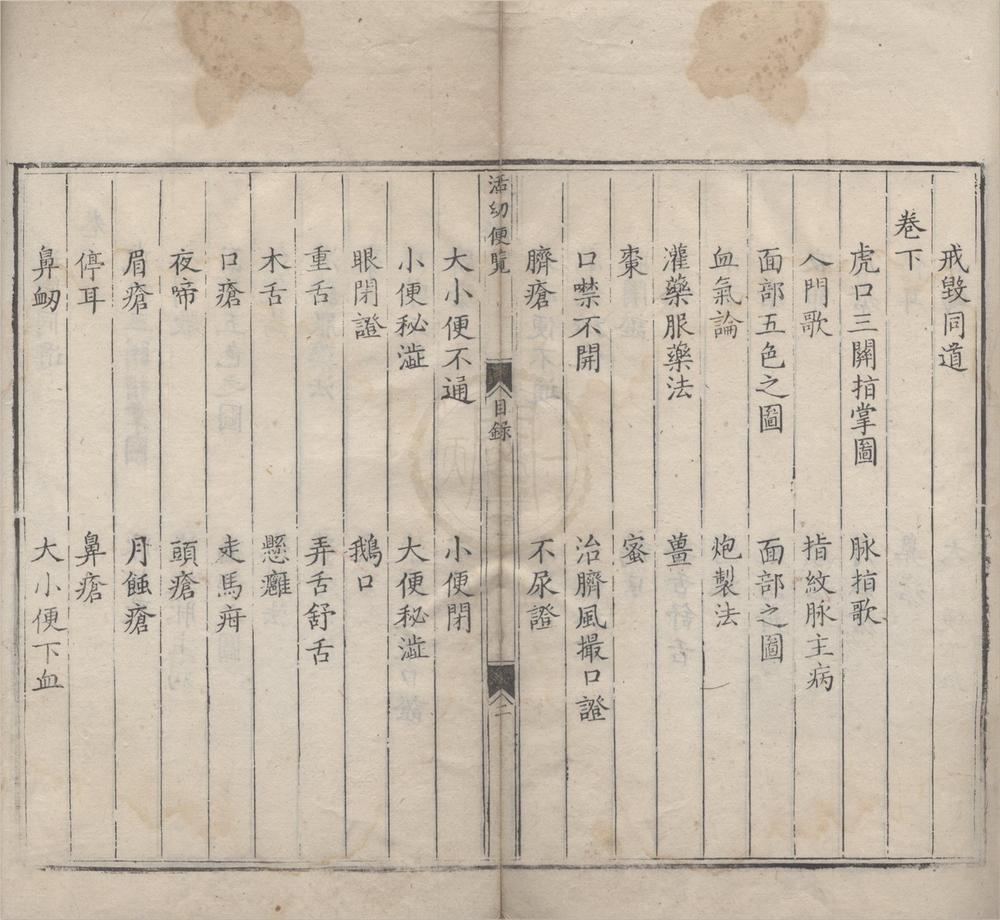 戒毀同道
卷下
虎口三關指掌圖　脉指歌
入門歌　指紋脉主病
面部五色之圖　面部之圖
血氣論　炮製法
灌藥服藥法　薑
棗　蜜
口噤不開　治臍風撮口證
臍瘡　不尿證
活幼便覧　目錄　二
大小便不通　小便閉
小便秘澁　大便秘澁
眼閉證　鵝口
重舌　弄舌舒舌
木舌　懸癰
口瘡　走馬疳
夜啼　頭瘡
眉瘡　月蝕瘡
停耳　鼻瘡
鼻衂　大小便下血